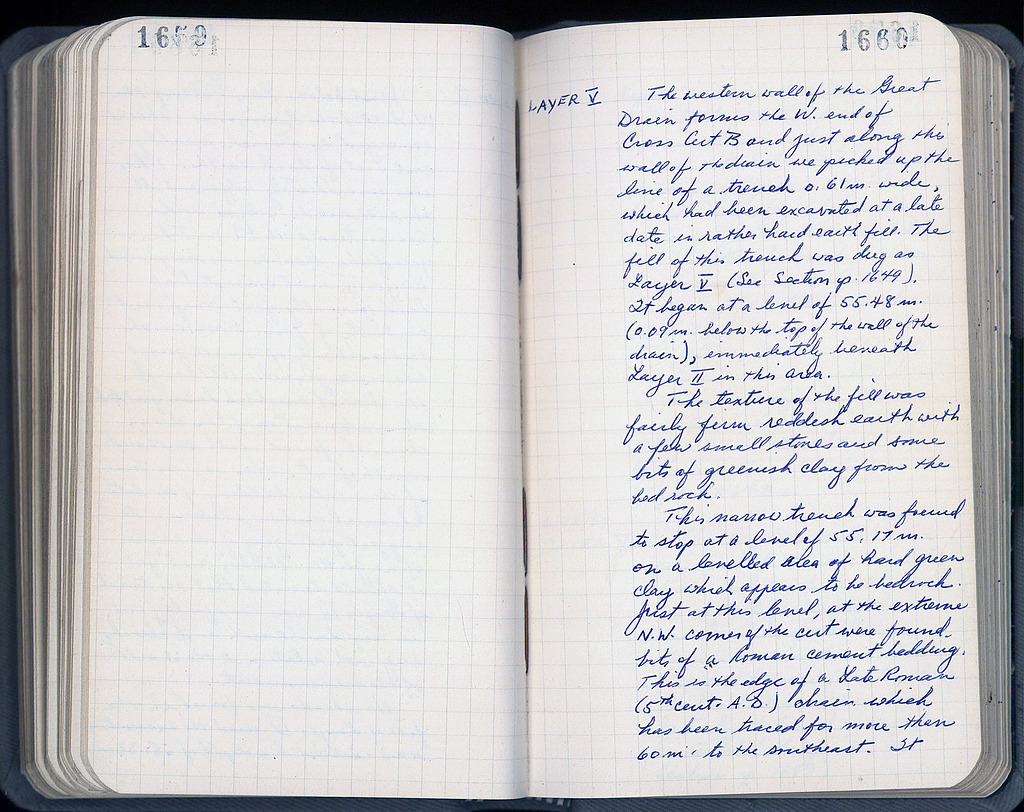 1659
1660
LAYER V
The western wall of the Great
Drain forms the W. end of
Cross Cut B and just along this
wall of the drain we picked up the
line of a trench 0.61m. wide,
which had been excavated at a late
date in rather hard earth fill. The
fill of this trench was dug as
Layer V (See Section p. 1649).
It began at a level of 55.48 m.
(0.09 m. below the top of the wall of the
drain), immediately beneath
Layer II in this area.
The texture of the fill was
fairly firm reddish earth with
a few small stones and some
bits of greenish clay from the
bed rock.
This narrow trench was found
to stop at a level of 55.17 m.
on a levelled area of hard green
clay which appears to be bedrock.
Just at this level, at the extreme
N.W. corner of the cut were found
bits of a Roman cement bedding.
This is the edge of a Late Roman
(5th cent. A.D.) drain which
has been traced for more than
60 m. to the southeast. It